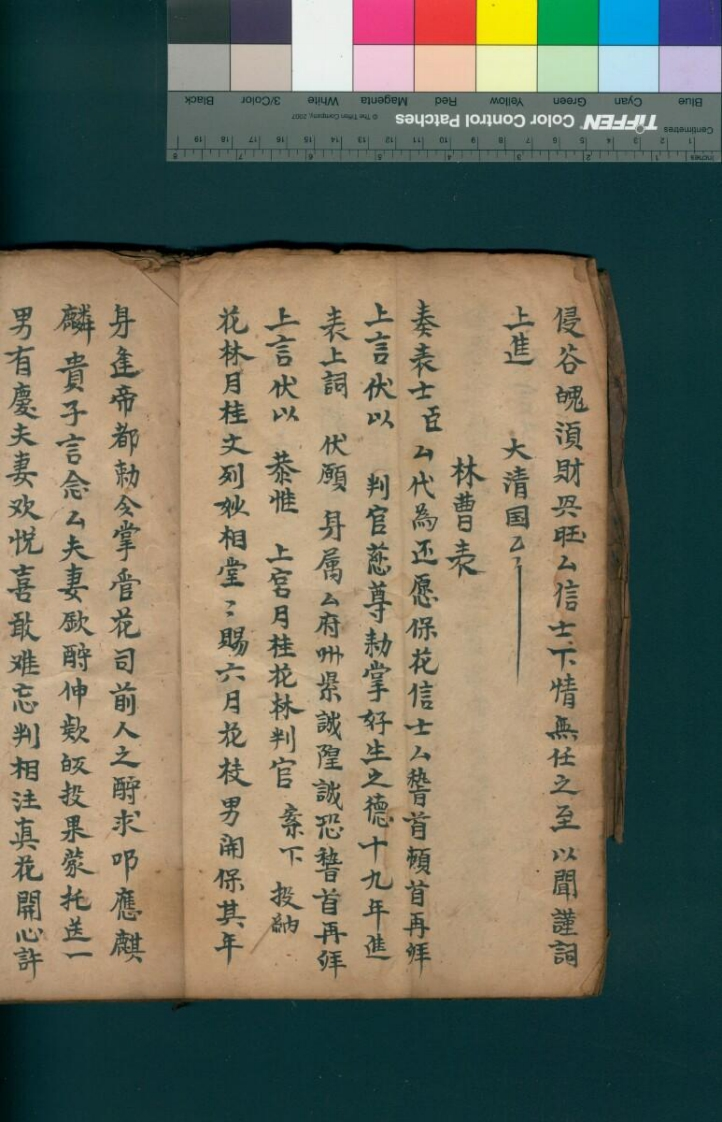 侵谷魄湏財興旺厶信士下情無任之至以聞謹詞
上進 大清国乙
林曹表
奏表士臣厶代為还愿保花信士厶稽首頓首再拜
上言伏以 判官慈尊勅掌好生之德十九年進
表上詞 伏願 身属厶府州県誠隍誠恐稽首再拜
上言伏以 恭惟 上宫月桂花林判官 案下 投納
花林月桂文列 相堂〻賜六月花枝男闹保其年
身進帝都勅令掌管花司前人之酧求叩應麒
麟 貴子言念厶夫妻 酧伸欵 投果蒙托送一
男有慶夫妻欢悅喜敢难忘判相注真花開心許
TIFFEN Color Control Patches
© The Tiffen Company, 2007
Centimetres
Inches
Blue Cyan Green Yellow Red Magenta White 3/Color Black
1 2 3 4 5 6 7 8 9 10 11 12 13 14 15 16 17 18 19
1 2 3 4 5 6 7 8